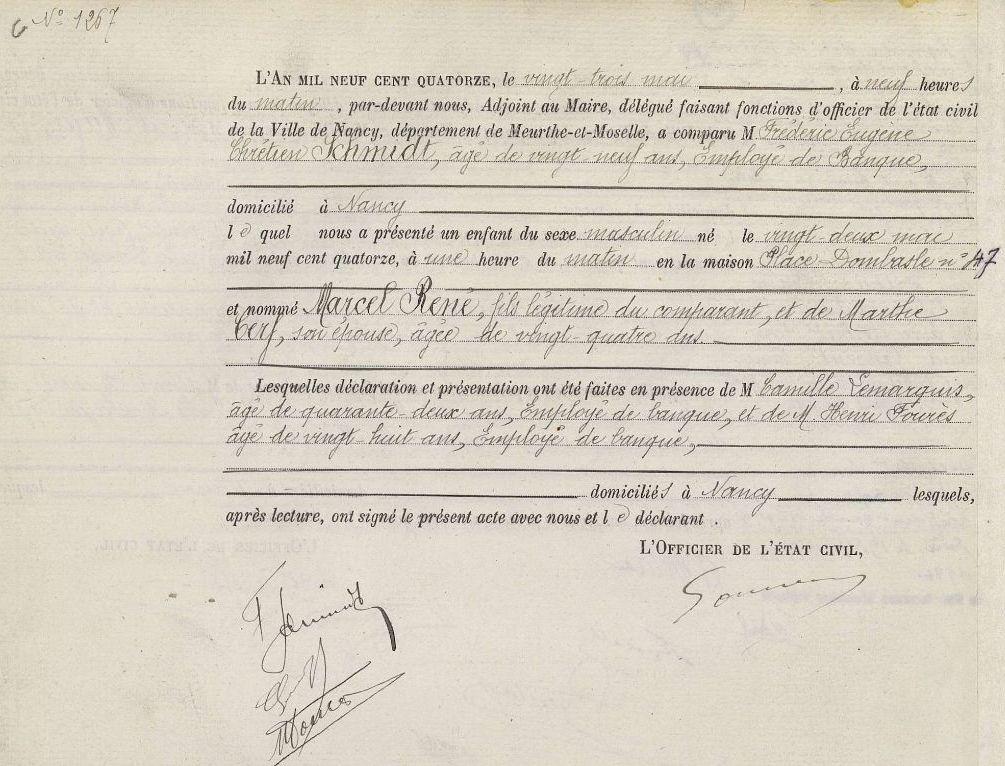 N° 1267
L'AN MIL NEUF CENT QUATORZE, le vingt-trois mai, à neuf heures
du matin, par-devant nous, Adjoint au Maire, délégué faisant fonctions d'officier de l'état civil
de la Ville de Nancy, département de Meurthe-et-Moselle, a comparu M Frédéric Eugène
Chrétien Schmidt, âgé de vingt-neuf ans, Employé de Banque,
domicilié à Nancy
le quel nous a présenté un enfant du sexe masculin né le vingt-deux mai
mil neuf cent quatorze, à une heure du matin en la maison Place Dombasle n°
et nommé Marcel René, fils légitime du comparant, et de Marthe
Cerf, son épouse, âgée de vingt-quatre ans.
Lesquelles déclaration et présentation ont été faites en présence de M Camille Lemarquis,
âgé de quarante-deux ans, Employé de banque, et de M. Henri Fourès
âgé de vingt-huit ans, Employé de banque,
domiciliés à Nancy lesquels,
après lecture, ont signé le présent acte avec nous et le déclarant.
L'OFFICIER DE L'ÉTAT CIVIL,